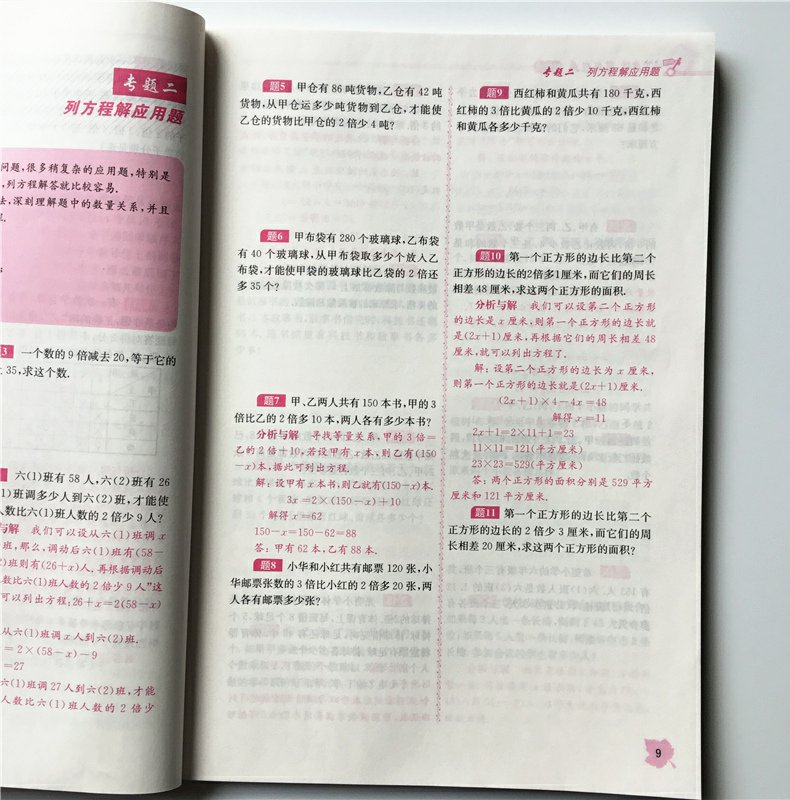 专题二
列方程解应用题
问题,很多稍复杂的应用题,特别是
,列方程解答就比较容易.
去,深刻理解题中的数量关系,并且
3 一个数的9倍减去20,等于它的
35,求这个数.
六(1)班有58人,六(2)班有26
1)班调多少人到六(2)班,才能使
人数比六(1)班人数的2倍少9人?
与解 我们可以设从六(1)班调x
班,那么,调动后六(1)班有(58-
2)班则有(26+x)人.再根据调动后
人数比六(1)班人数的2倍少9人”这
可以列出方程:26+x=2(58-x)
从六(1)班调x人到六(2)班.
=2×(58-x)-9
=27
六(1)班调27人到六(2)班,才能
人数比六(1)班人数的2倍少
专题二 列方程解应用题
题5 甲仓有86吨货物,乙仓有42吨
货物,从甲仓运多少吨货物到乙仓,才能使
乙仓的货物比甲仓的2倍少4吨?
题6 甲布袋有280个玻璃球,乙布袋
有40个玻璃球,从甲布袋取多少个放入乙
布袋,才能使甲袋的玻璃球比乙袋的2倍还
多35个?
题7 甲、乙两人共有150本书,甲的3
倍比乙的2倍多10本,两人各有多少本书?
分析与解 寻找等量关系,甲的3倍=
乙的2倍+10,若设甲有x本,则乙有(150
-x)本,据此可列出方程.
解:设甲有x本书,则乙就有(150-x)本.
3x=2×(150-x)+10
解得x=62
150-x=150-62=88
答:甲有62本,乙有88本.
题8 小华和小红共有邮票120张,小
华邮票张数的3倍比小红的2倍多20张,两
人各有邮票多少张?
题9 西红柿和黄瓜共有180千克,西
红柿的3倍比黄瓜的2倍少10千克,西红柿
和黄瓜各多少千克?
题10 第一个正方形的边长比第二个
正方形的边长的2倍多1厘米,而它们的周长
相差48厘米,求这两个正方形的面积.
分析与解 我们可以设第二个正方形
的边长是x厘米,则第一个正方形的边长就
是(2x+1)厘米,再根据它们的周长相差48
厘米,就可以列出方程了.
解:设第二个正方形的边长为x厘米,
则第一个正方形的边长就是(2x+1)厘米.
(2x+1)×4-4x=48
解得x=11
2x+1=2×11+1=23
11×11=121(平方厘米)
23×23=529(平方厘米)
答:两个正方形的面积分别是529平方
厘米和121平方厘米.
题11 第一个正方形的边长比第二个
正方形的边长的2倍少3厘米,而它们的周
长相差20厘米,求这两个正方形的面积?
9